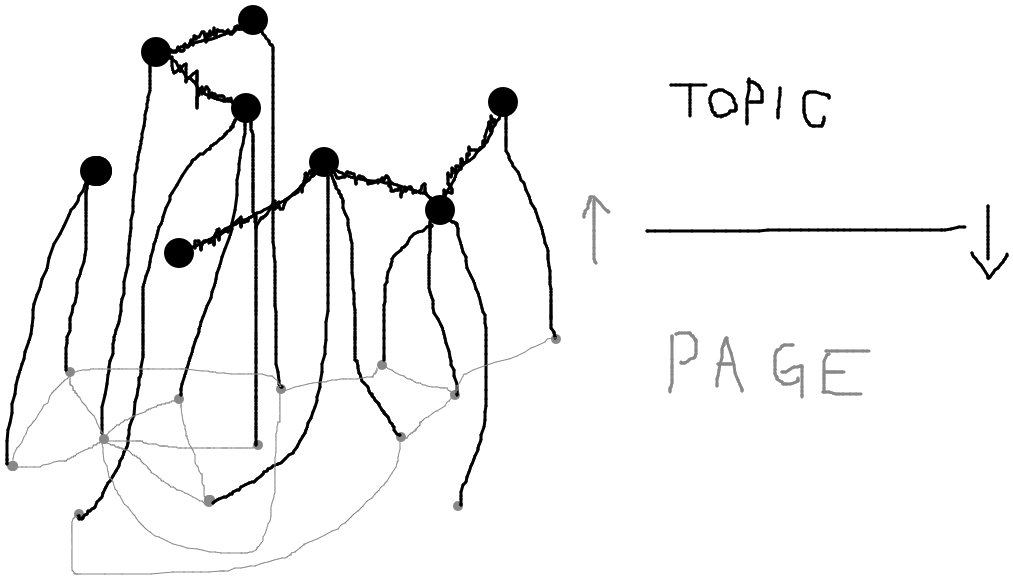 TOPIC
PAGE